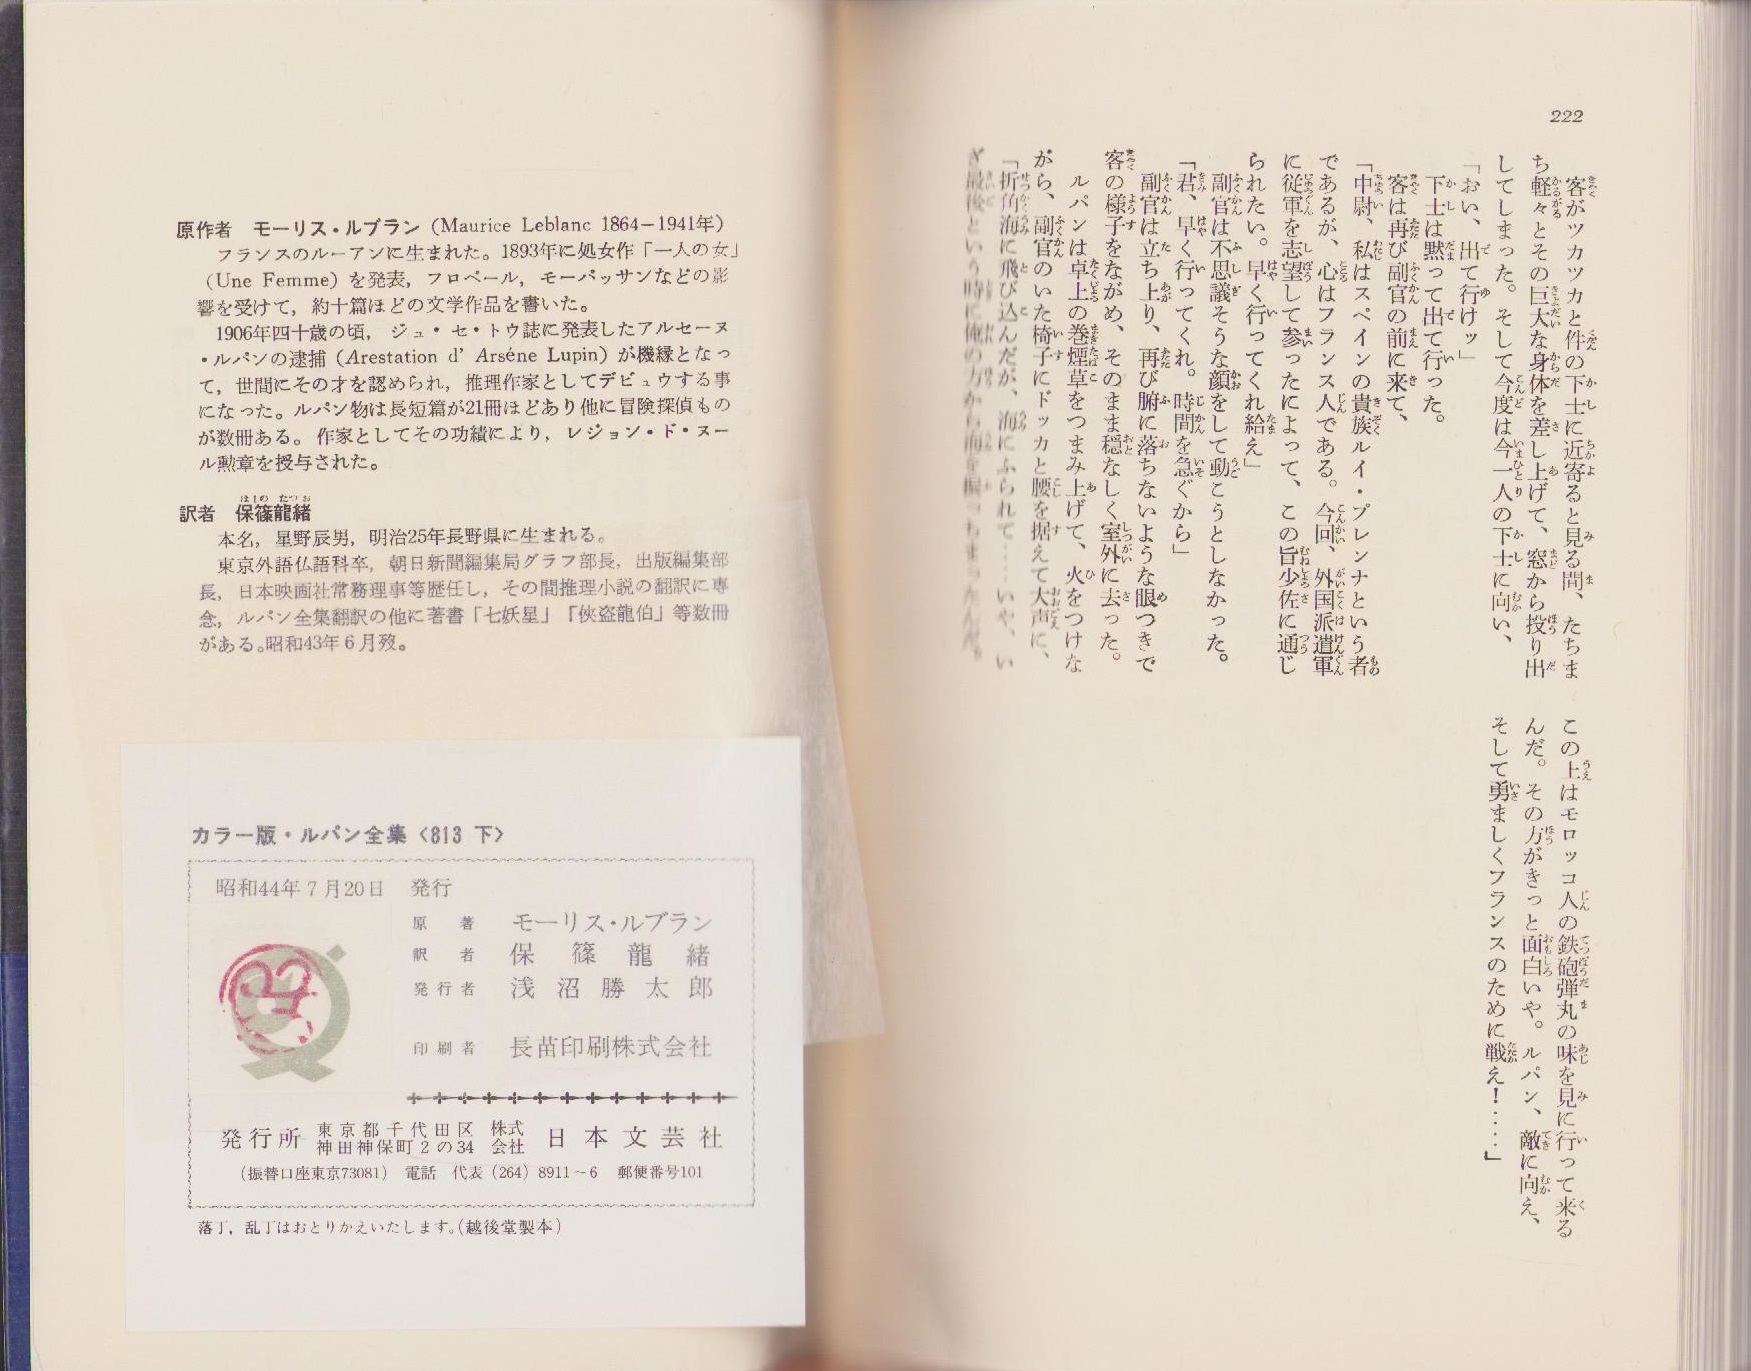 222
客がツカツカと件の下士に近寄ると見る間、たちま
ち軽々とその巨大な身体を差し上げて、窓から投り出
してしまった。そして今度は今一人の下士に向い、
「おい、出て行けッ」
下士は黙って出て行った。
客は再び副官の前に来て、
「中尉、私はスペインの貴族ルイ・プレンナという者
であるが、心はフランス人である。今回、外国派遣軍
に従軍を志望して参ったによって、この旨少佐に通じ
られたい。早く行ってくれ給え」
副官は不思議そうな顔をして動こうとしなかった。
「君、早く行ってくれ。時間を急ぐから」
副官は立ち上り、再び腑に落ちないような眼つきで
客の様子をながめ、そのまま穏なしく室外に去った。
ルパンは卓上の巻煙草をつまみ上げて、火をつけな
がら、副官のいた椅子にドッカと腰を据えて大声に、
「折角海に飛び込んだが、海にふられて……いや、い
ざ最後という時に俺の方から海を振っちまったんだ。
この上はモロッコ人の鉄砲弾丸の味を見に行って来る
んだ。その方がきっと面白いや。ルパン、敵に向え、
そして勇ましくフランスのために戦え！……」
原作者 モーリス・ルブラン (Maurice Leblanc 1864−1941年)
フランスのルーアンに生まれた。1893年に処女作「一人の女」
(Une Femme) を発表，フロベール，モーパッサンなどの影
響を受けて，約十篇ほどの文学作品を書いた。
1906年四十歳の頃，ジュ・セ・トウ誌に発表したアルセーヌ
・ルパンの逮捕 (Arestation d' Arséne Lupin) が機縁となっ
て，世間にその才を認められ，推理作家としてデビュウする事
になった。ルパン物は長短篇が21冊ほどあり他に冒険探偵もの
が数冊ある。作家としてその功績により，レジョン・ド・ヌー
ル勲章を授与された。
訳者 保篠龍緒
本名，星野辰男，明治25年長野県に生まれる。
東京外語仏語科卒，朝日新聞編集局グラフ部長，出版編集部
長，日本映画社常務理事等歴任し，その間推理小説の翻訳に専
念，ルパン全集翻訳の他に著書「七妖星」「侠盗龍伯」等数冊
がある。昭和43年6月歿。
カラー版・ルパン全集〈813 下〉
昭和44年7月20日 発行
原著 モーリス・ルブラン
訳者 保篠龍緒
発行者 浅沼勝太郎
印刷者 長苗印刷株式会社
発行所 東京都千代田区神田神保町2の34 株式会社 日本文芸社
(振替口座東京73081) 電話 代表 (264) 8911~6 郵便番号101
落丁，乱丁はおとりかえいたします。(越後堂製本)